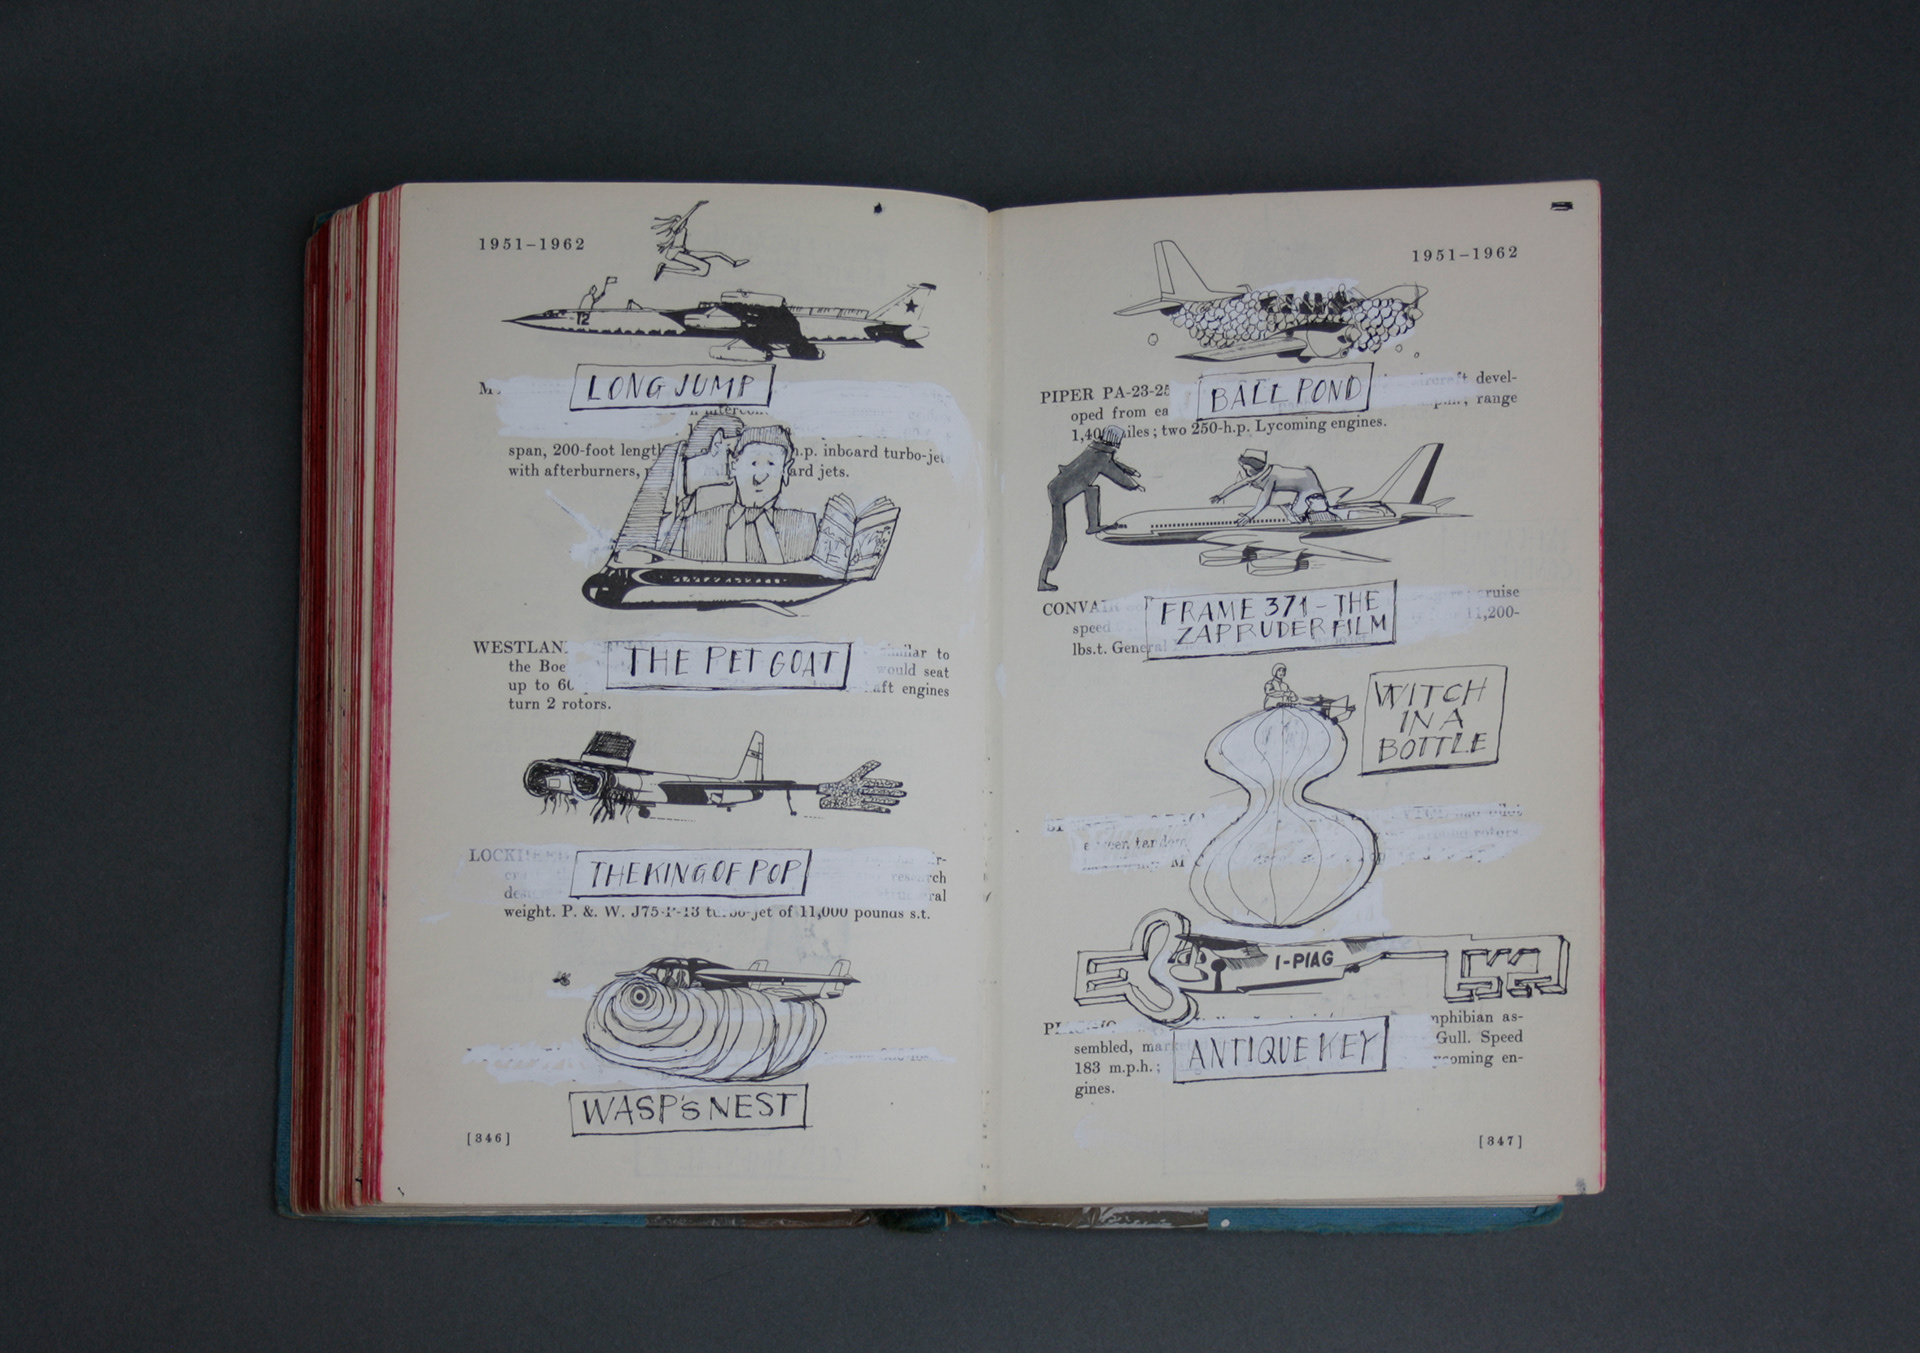 1951–1962
12
LONG JUMP
span, 200-foot length h.p. inboard turbo-jet
with afterburners, ard jets.
THE PET GOAT
WESTLAN similar to
the Boe would seat
up to 60 aft engines
turn 2 rotors.
THE KING OF POP
LOCKHEED
weight. P. & W. J75-P-13 turbo-jet of 11,000 pounds s.t.
WASP'S NEST
[346]
1951–1962
BALL POND
PIPER PA-23-25 aircraft devel-
oped from ea range
1,40 miles; two 250-h.p. Lycoming engines.
FRAME 371 – THE
ZAPRUDER FILM
CONVAI cruise
speed 11,200-
lbs.t. General
WITCH
IN A
BOTTLE
I-PIAG
ANTIQUE KEY
mphibian as-
sembled, mar Gull. Speed
183 m.p.h.; coming en-
gines.
[347]